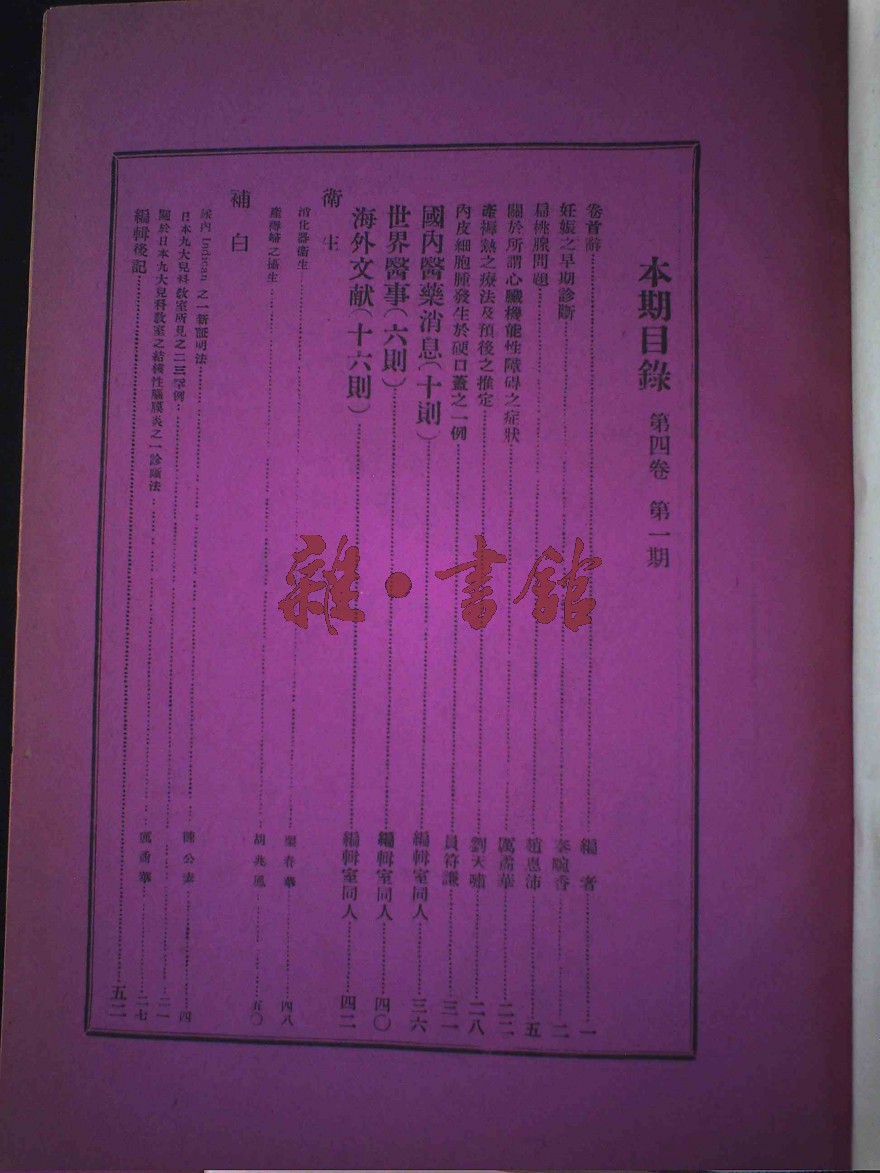 本期目錄 第四卷 第一期
卷首辭 編者 一
妊娠之早期診斷 秦琬香 二
扁桃腺問題 趙恩沛 五
關於所謂心臟機能性障碍之症狀 厲喬華 二二
產褥熱之療法及預後之推定 劉天嘯 二八
內皮細胞腫發生於硬口蓋之一例 員符謙 三一
國內醫藥消息(十則) 編輯室同人 三六
世界醫事(六則) 編輯室同人 四〇
海外文献(十六則) 編輯室同人 四二
衛生
消化器衛生 春華 四八
產得婦之攝生 胡兆鳳 五〇
補白
尿內 Indican 之一新証明法 陳公素 四
日本九大兒科教室所見之二三例 二一
關於日本九大兒科教室之結核性腦膜炎之一診斷法 厲喬華 二七
編輯後記 五二
雜·書館